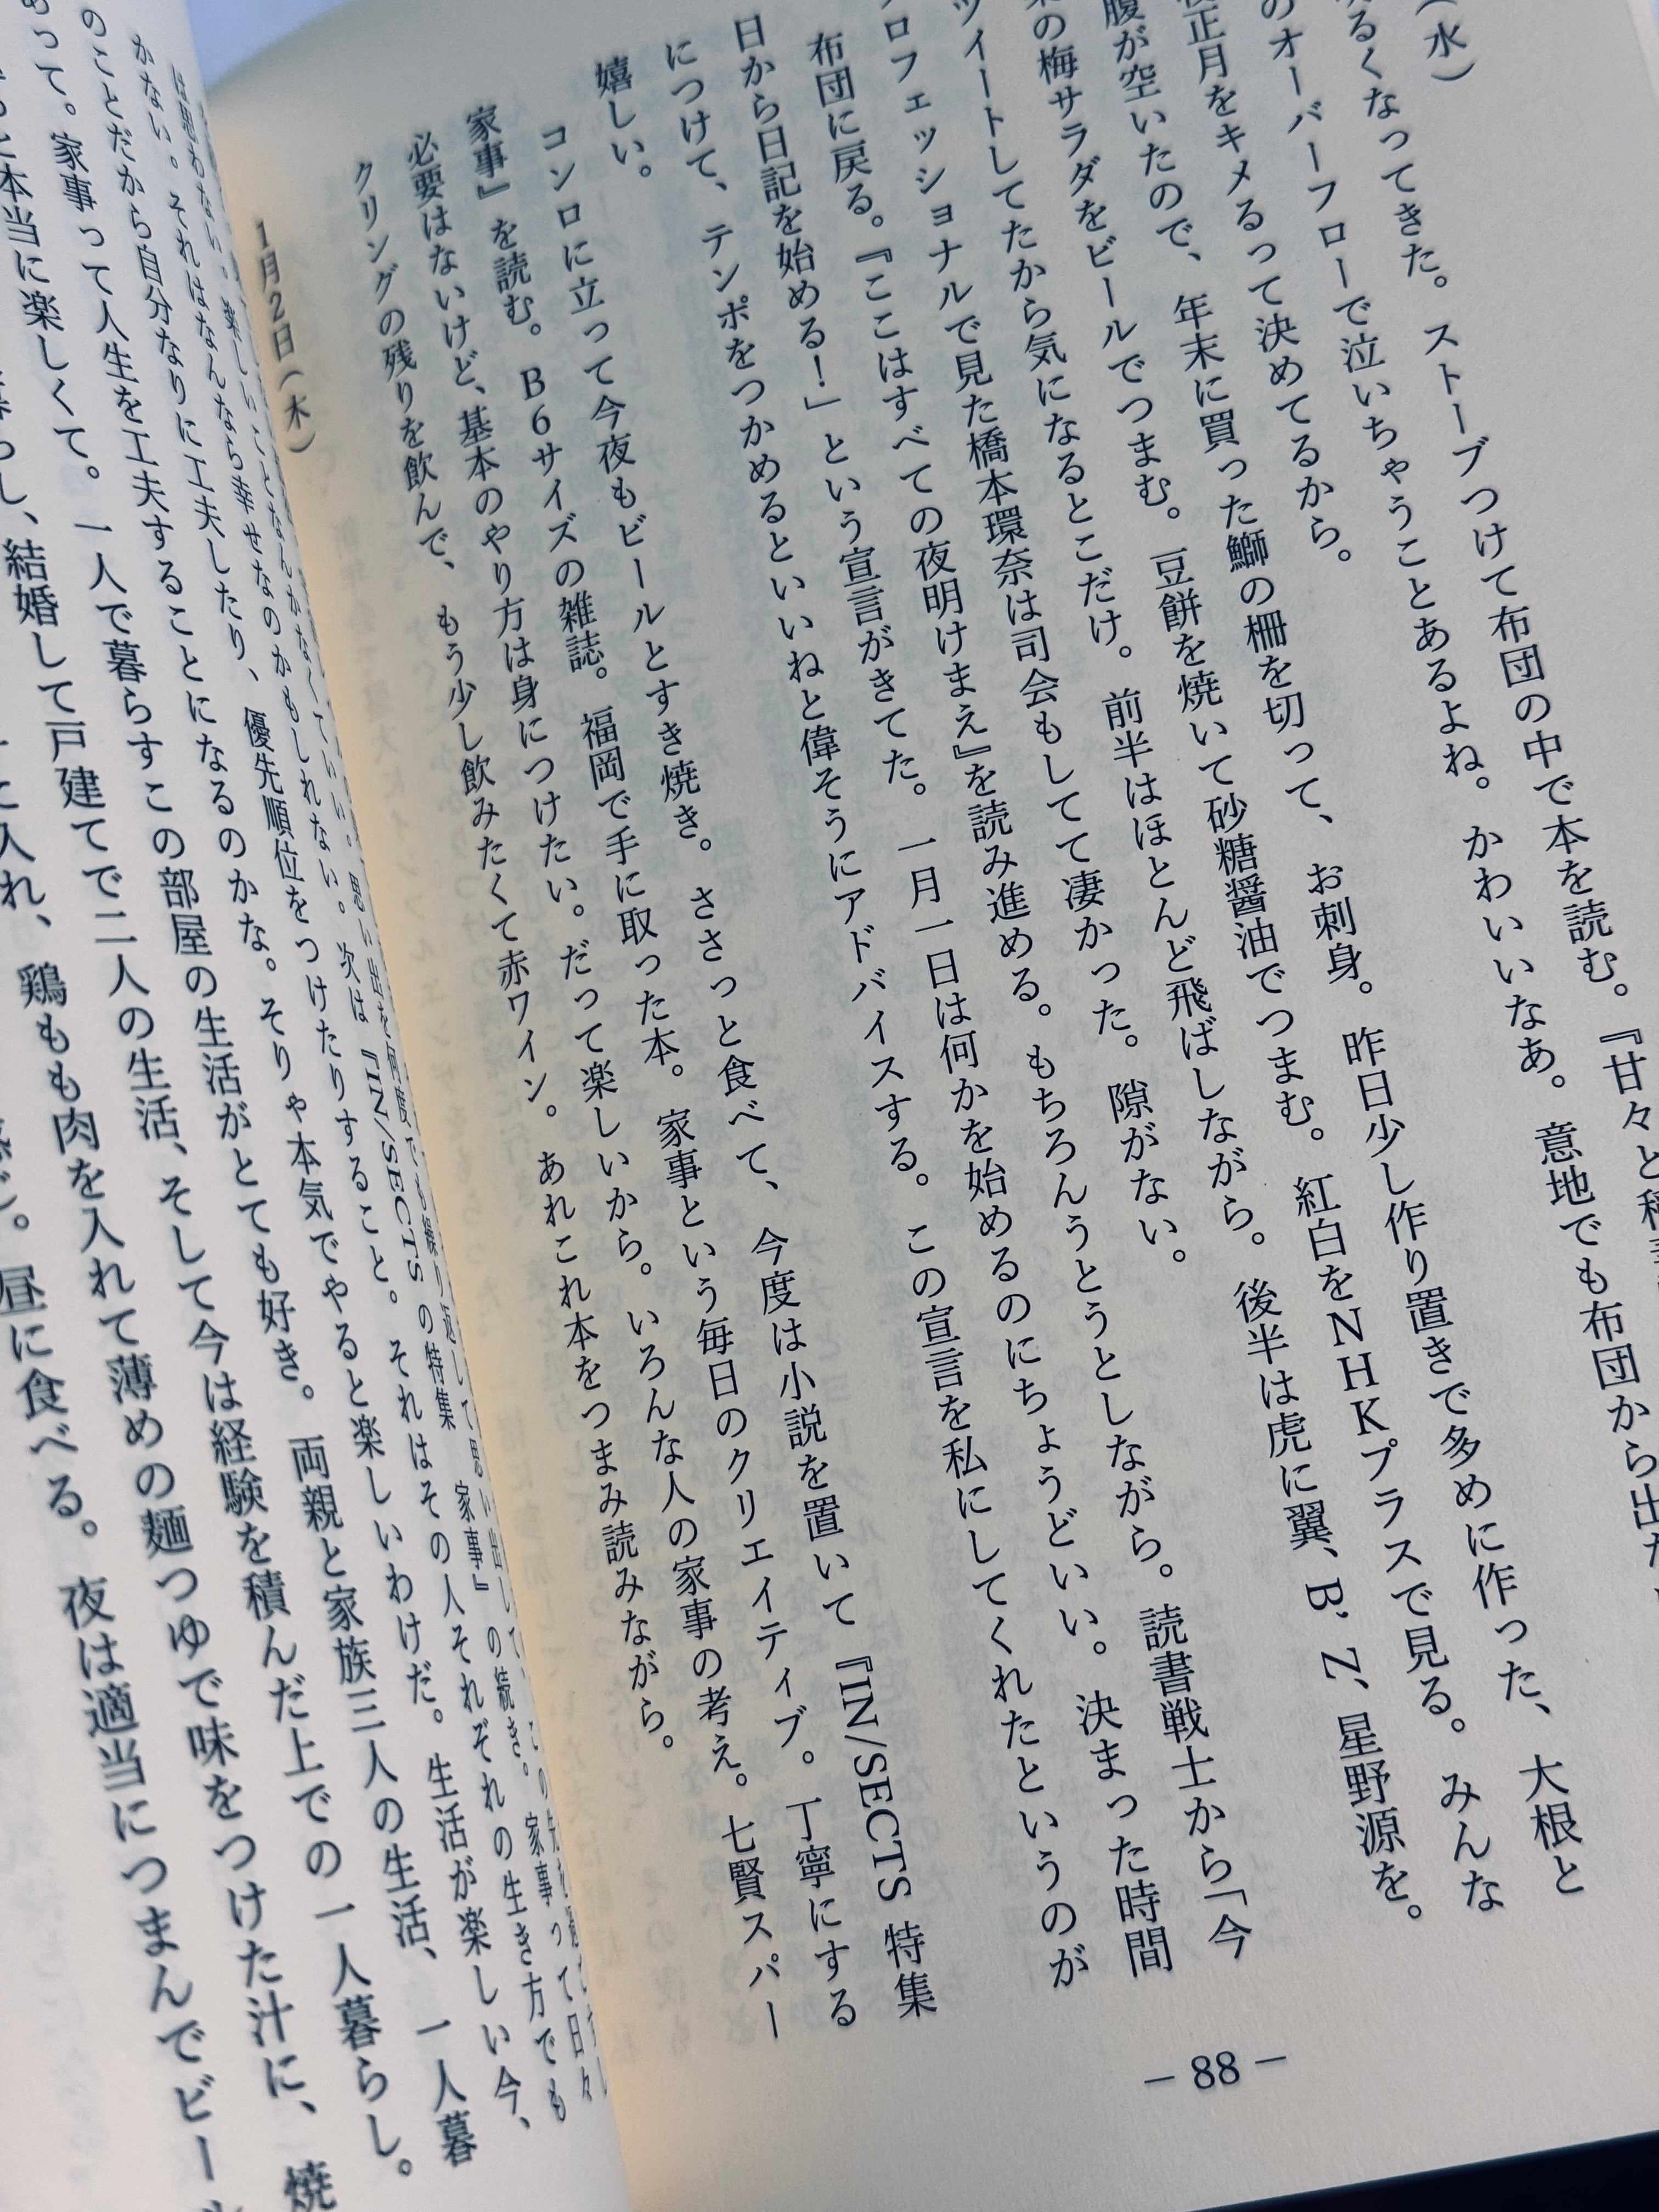 （水）
るくなってきた。ストーブつけて布団の中で本を読む。『甘々と
のオーバーフローで泣いちゃうことあるよね。かわいいなあ。意地でも布団から出
正月をキメるって決めてるから。
腹が空いたので、年末に買った鰤の柵を切って、お刺身。昨日少し作り置きで多めに作った、大根と
の梅サラダをビールでつまむ。豆餅を焼いて砂糖醤油でつまむ。紅白をNHKプラスで見る。みんな
ツイートしてたから気になるとこだけ。前半はほとんど飛ばしながら。後半は虎に翼、B'Z、星野源を。
ロフェッショナルで見た橋本環奈は司会もしてて凄かった。隙がない。
布団に戻る。『ここはすべての夜明けまえ』を読み進める。もちろんうとうとしながら。読書戦士から「今
日から日記を始める！」という宣言がきてた。一月一日は何かを始めるのにちょうどいい。決まった時間
につけて、テンポをつかめるといいねと偉そうにアドバイスする。この宣言を私にしてくれたというのが
嬉しい。
コンロに立って今夜もビールとすき焼き。ささっと食べて、今度は小説を置いて『IN/SECTS 特集
家事』を読む。B6サイズの雑誌。福岡で手に取った本。家事という毎日のクリエイティブ。丁寧にする
必要はないけど、基本のやり方は身につけたい。だって楽しいから。いろんな人の家事の考え。七賢スパー
クリングの残りを飲んで、もう少し飲みたくて赤ワイン。あれこれ本をつまみ読みながら。
1月2日（木）
— 88 —
は思わない。楽しいことなんかなくていい。思い出を何度でも繰り返して思い出して、この先を
かない。それはなんなら幸せなのかもしれない。次は『IN/SECTS の特集 家事』の続き。家事って日々
のことだから自分なりに工夫したり、優先順位をつけたりすること。それはその人それぞれの生き方でも
あって。家事って人生を工夫することになるのかな。そりゃ本気でやると楽しいわけだ。生活が楽しい今、
と本当に楽しくて。一人で暮らすこの部屋の生活がとても好き。両親と家族三人の生活、一人暮
し、結婚して戸建てで二人の生活、そして今は経験を積んだ上での一人暮らし。
に入れ、鶏もも肉を入れて薄めの麺つゆで味をつけた汁に、焼
昼に食べる。夜は適当につまんでビール